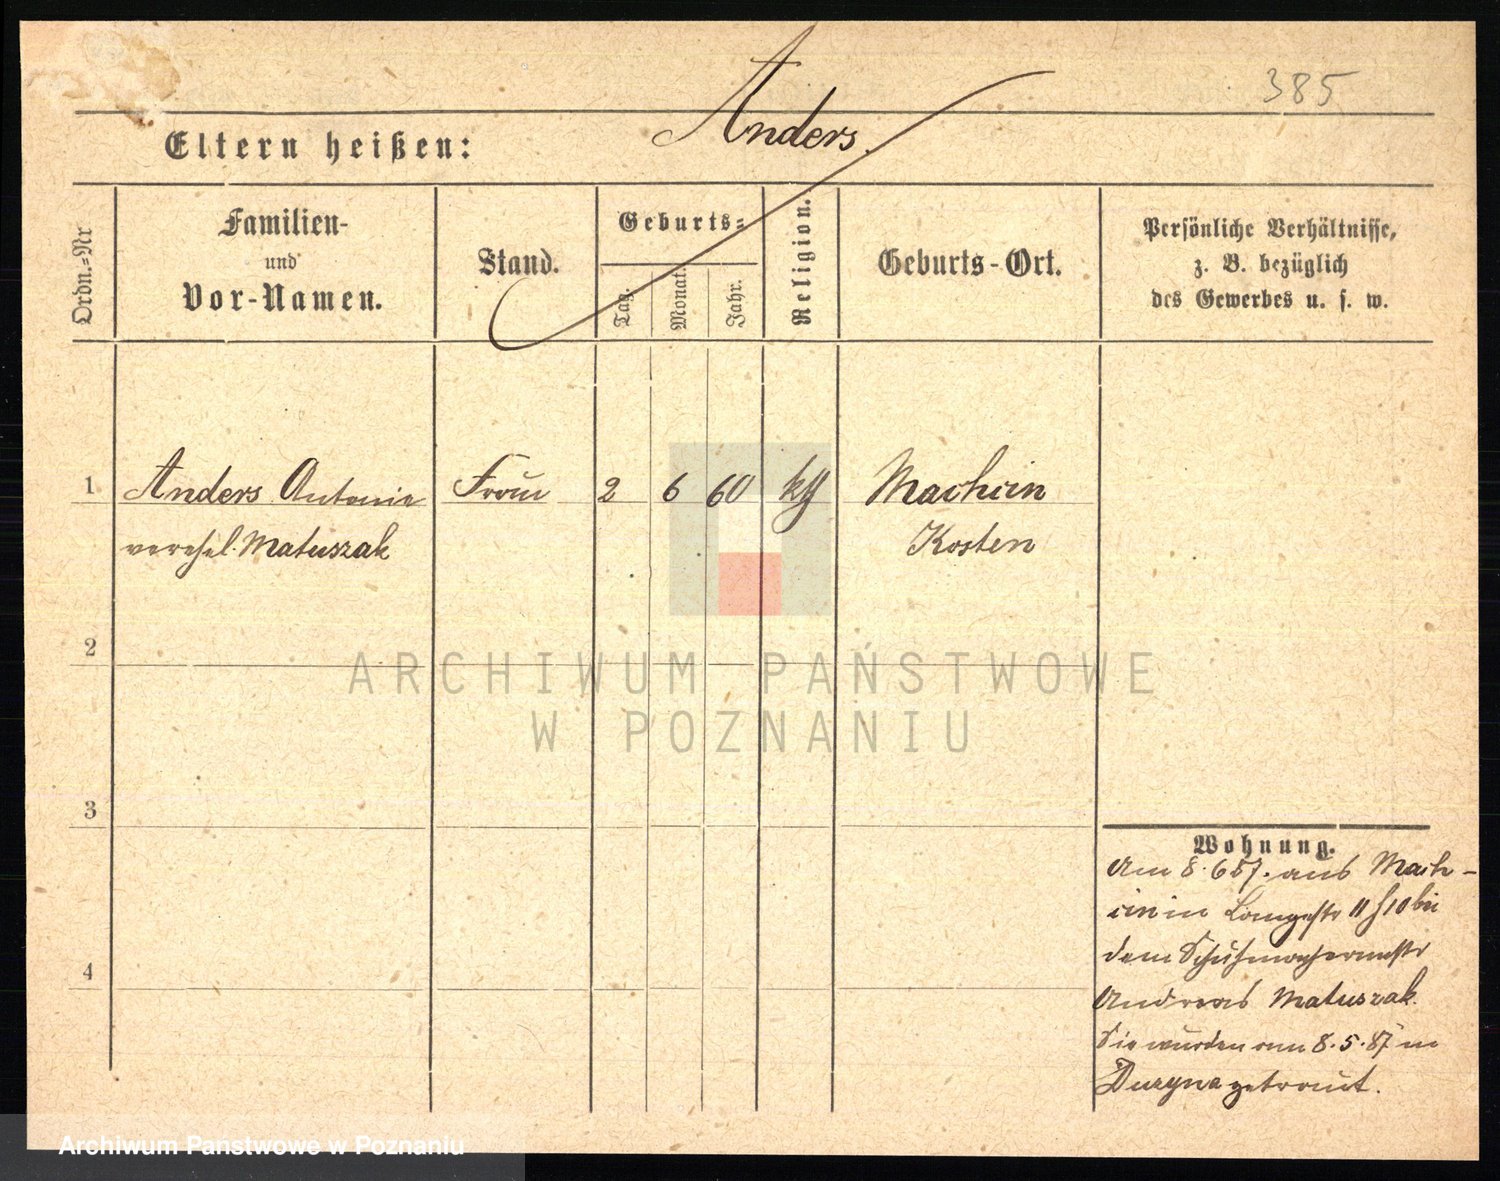 385
Eltern heißen: Anders.
Ordn.=Nr
Familien-
und
Vor-Namen.
Stand.
Geburts=
Tag.
Monat.
Jahr.
Religion.
Geburts-Ort.
Persönliche Verhältnisse,
z. B. bezüglich
des Gewerbes u. s. w.
1 Anders Antonie Frau 2 6 60 Machcin
verehel. Matuszak Kosten
2
3
4
Wohnung.
Am 8. 6 87. aus Mach-
cin in Langestr 11 bei
dem Schuhmachermstr
Andreas Matuszak.
Sie wurden am 8. 5. 87 in
getraut.
ARCHIWUM PAŃSTWOWE
W POZNANIU
Archiwum Państwowe w Poznaniu